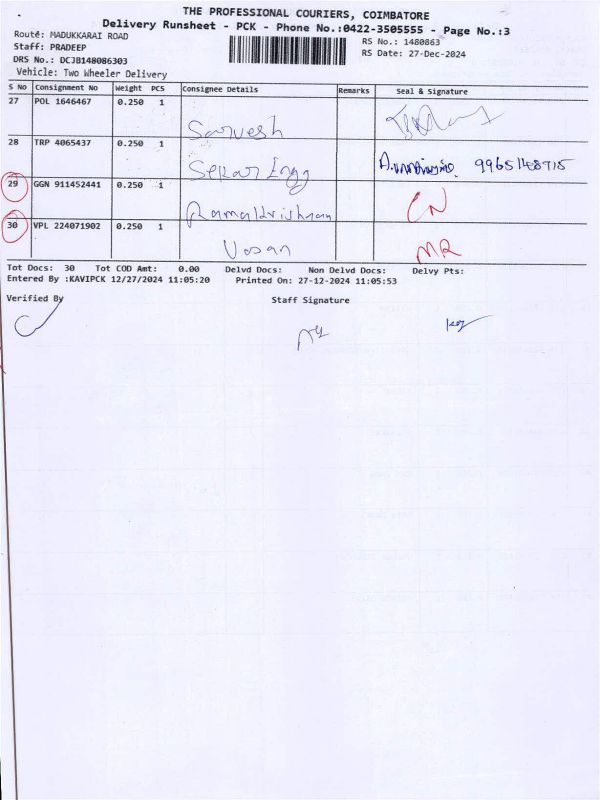 THE PROFESSIONAL COURIERS, COIMBATORE
Delivery Runsheet - PCK - Phone No.:0422-3505555 - Page No.:3
Route: MADUKKARAI ROAD
RS No.: 1480863
Staff: PRADEEP
RS Date: 27-Dec-2024
DRS No.: DCJB148086303
Vehicle: Two Wheeler Delivery
S No Consignment No Weight PCS Consignee Details Remarks Seal & Signature
27 POL 1646467 0.250 1 Sarvesh
28 TRP 4065437 0.250 1 Sekar Engg 9965148715
29 GGN 911452441 0.250 1 Ramakrishnan CN
30 VPL 224071902 0.250 1 Vasan MR
Tot Docs: 30 Tot COD Amt: 0.00 Delvd Docs: Non Delvd Docs: Delvy Pts:
Entered By :KAVIPCK 12/27/2024 11:05:20 Printed On: 27-12-2024 11:05:53
Verified By Staff Signature